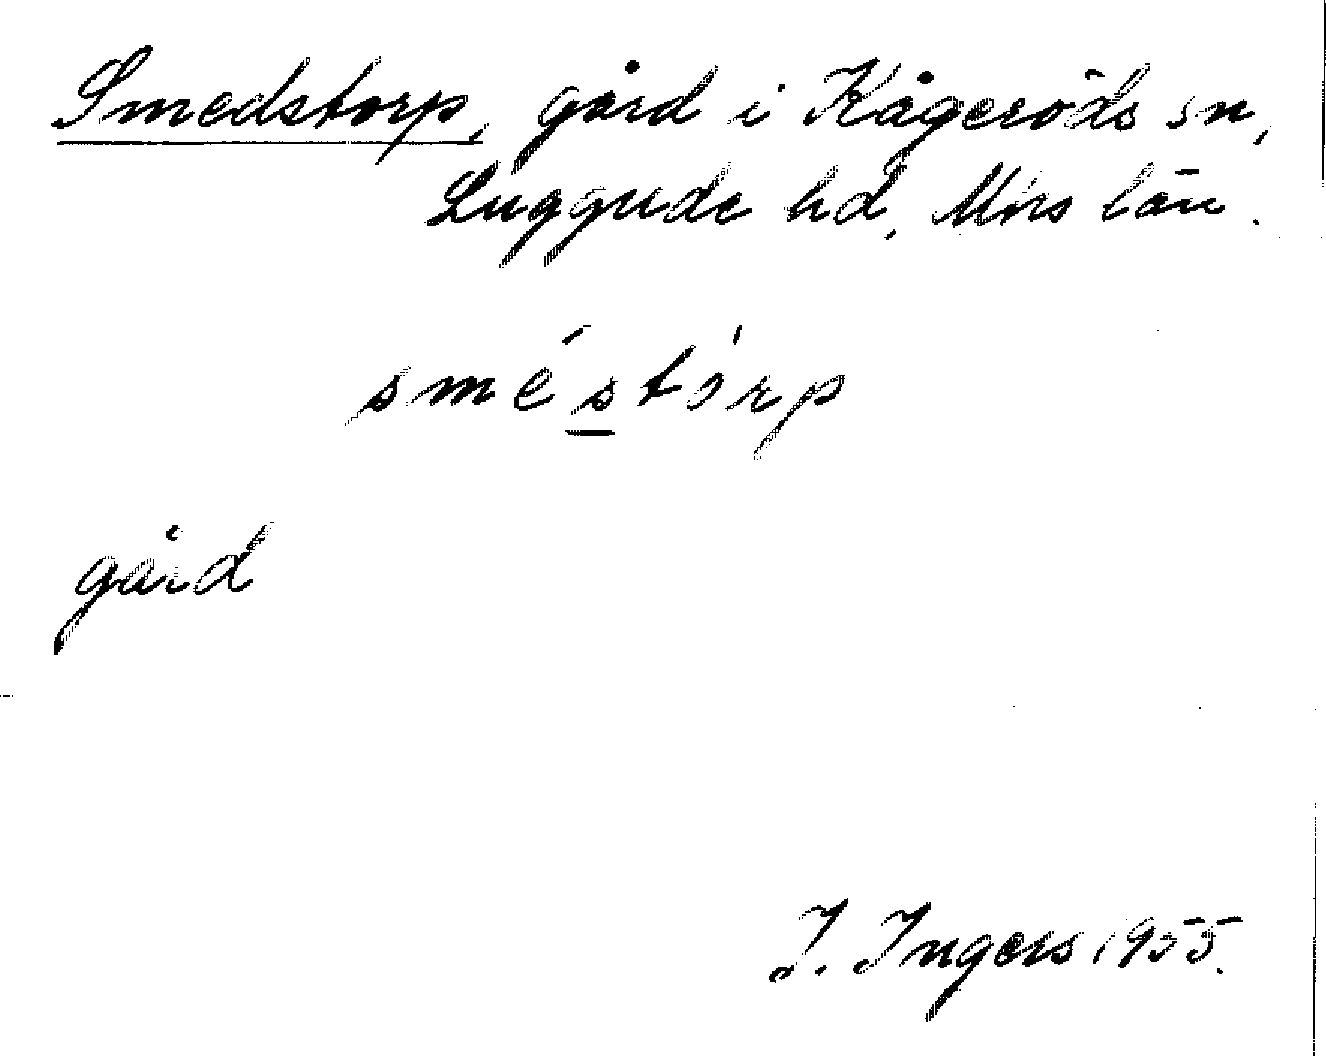 Smedstorp, gård i Kågeröds sn,
Luggude hd, Mhs län.
sméstòrp
gård
I. Ingers 1955.